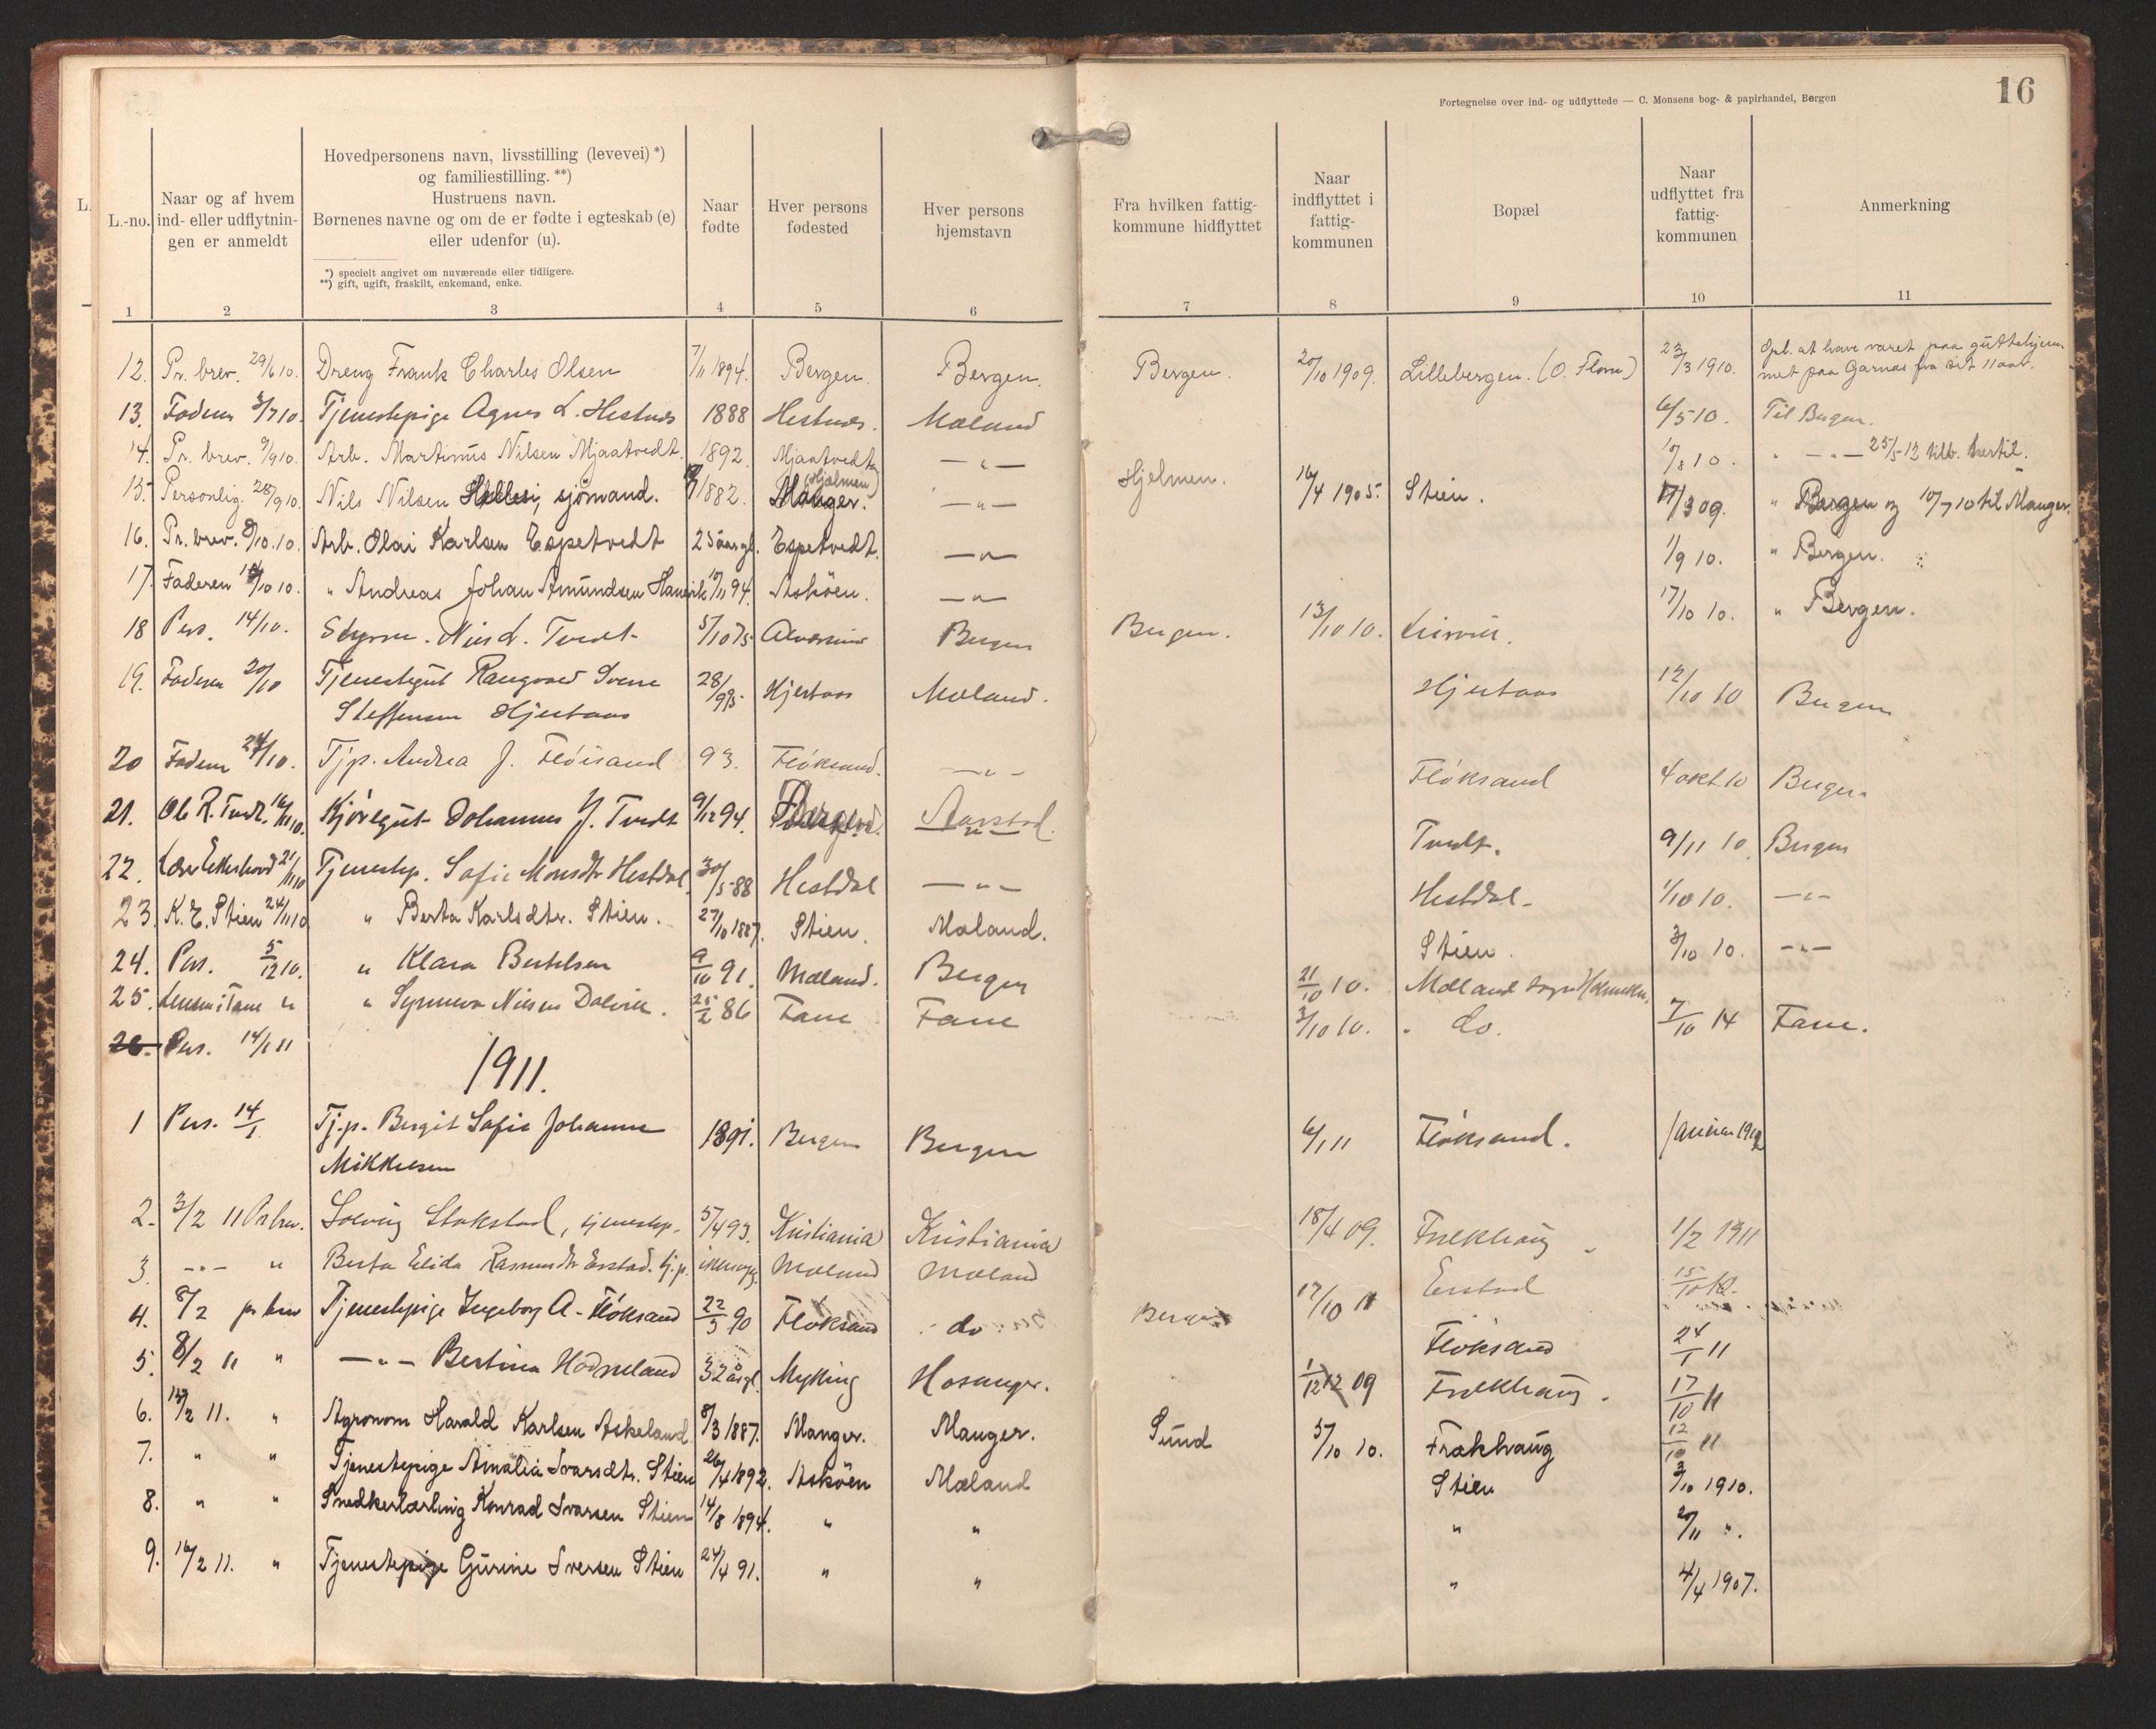 16
Fortegnelse over ind- og udflyttede — C. Monsens bog- & papirhandel, Bergen
L.
L.-no.
Naar og af hvem
ind- eller udflytnin-
gen er anmeldt
Hovedpersonens navn, livsstilling (levevei) *)
og familiestilling. **)
Hustruens navn.
Børnenes navne og om de er fødte i egteskab (e)
eller udenfor (u).
*) specielt angivet om nuværende eller tidligere.
**) gift, ugift, fraskilt, enkemand, enke.
Naar
fødte
Hver persons
fødested
Hver persons
hjemstavn
Fra hvilken fattig-
kommune hidflyttet
Naar
indflyttet i
fattig-
kommunen
Bopæl
Naar
udflyttet fra
fattig-
kommunen
Anmerkning
1 2 3 4 5 6 7 8 9 10 11
12. Pr. brev. 29/6 10. Dreng Frank Charles Olsen 7/11 1894. Bergen. Bergen. Bergen. 20/10 1909. Lillebergen. (O. Florn) 23/3 1910. Opl. at have været paa guttehjem-
met paa Garnæs fra sit 11 aar.
13. Faderen 3/7 10. Tjenestepige Agnes L. Hestnes 1888 Hestnes. Mæland 6/5 10. Til Bergen.
14. Pr. brev. 9/9 10. Arb. Martinus Nilsen Mjaatvedt. 1892. Mjaatvedt —"— 10/8 10. " —"— 25/5-12 tilb. hertil.
15. Personlig. 28/9 10. Nils Nilsen sjömand. 1882. Manger. (Hjelmen) —"— Hjelmen. 16/4 1905. Stien. 09. " Bergen og 10/7 10 til Manger.
16. Pr. brev. 9/10.10. Arb. Olai Karlsen Espetvedt 25 aar gl. Espetvedt. —"— 1/9 10. " Bergen.
17. Faderen 10 10. " Andreas Johan Amundsen Hanevik 10/11 94. Asköen. —"— 17/10 10. " Bergen.
18 Pers. 14/10. Styrm. Nils L. Tvedt 5/10 75 Bergen Bergen. 13/10 10.
19. Faderen 20/10 Tjenestegut Rangvald Sverre 28/ 95. Hjertaas Mæland. Hjertaas 12/10 10 Bergen
Steffensen Hjertaas
20 Faderen 24/10. Tjp. Andrea J. Flöksand 93. Flöksand. —"— Flöksand 4 okt. 10 Bergen
21. Ole R. Tvedt. 16/11 10. Kjöregut Johannes J. Tvedt 9/12 94. Aarstad. Tvedt. 9/11 10. Bergen
22. 21/11 10 Tjenestep. Sofie Monsdtr Hestdal 30/5-88 Hestdal —"— Hestdal 1/10 10. —"—
23. K. E. Stien 24/11 10 " Berta Karlsdtr. Stien. 27/10 1887. Stien. Mæland. Stien. 3/10 10. —"—
24. Pers. 5/12 10. " Klara Bertelsen 9/10 91. Mæland. Bergen 21/10 10. Mæland
25. " " Synneva Nilsen Dalvik. 25/2 86 Fane Fane 3/10 10. " do. 7/10 14 Fane.
26. Pers. 14/1 11
1911.
1 Pers. 14/1. Tj.p. Bergit Sofie Johanne 1891. Bergen Bergen 6/1 11 Flöksand. Januar 1912
Mikkelsen
2. 3/2 11 Pr. brev. Solveig Stokstad, tjenestep. 5/4 93. Kristiania Kristiania 18/4 09. Frekhaug 1/2 1911
3. —"— " Berta Elida Rasmusdtr Erstad. tj.p. Mæland Mæland 17/10 11 Erstad 15/10 10.
4. 8/2 pr brev Tjenestepige Ingeborg A. Flöksand 22/5 90 Flöksand do Bergen Flöksand 24/1 11
5. 8/2 11 " —"— Bertina Hodneland 32 år gl. Mykking Hosanger. 1/12 09 Frekhaug. 17/10 11
6. 13/2 11. " Agronom Harald Karlsen Askeland 8/3 1887. Manger. Manger. Sund 5/10 10. Frækhaug 12/10 11
7. " " Tjenestepige Amalia Ivarsdtr. Stien 26/4 1892. Asköen Mæland Stien 3/10 1910.
8. " " Snedkerlærling Konrad Ivarsen Stien 14/8 1894. " " " 20/11 ".
9. 16/2 11. " Tjenestepige Gurine Iversen Stien 24/4 91. " " " 4/4 1907.